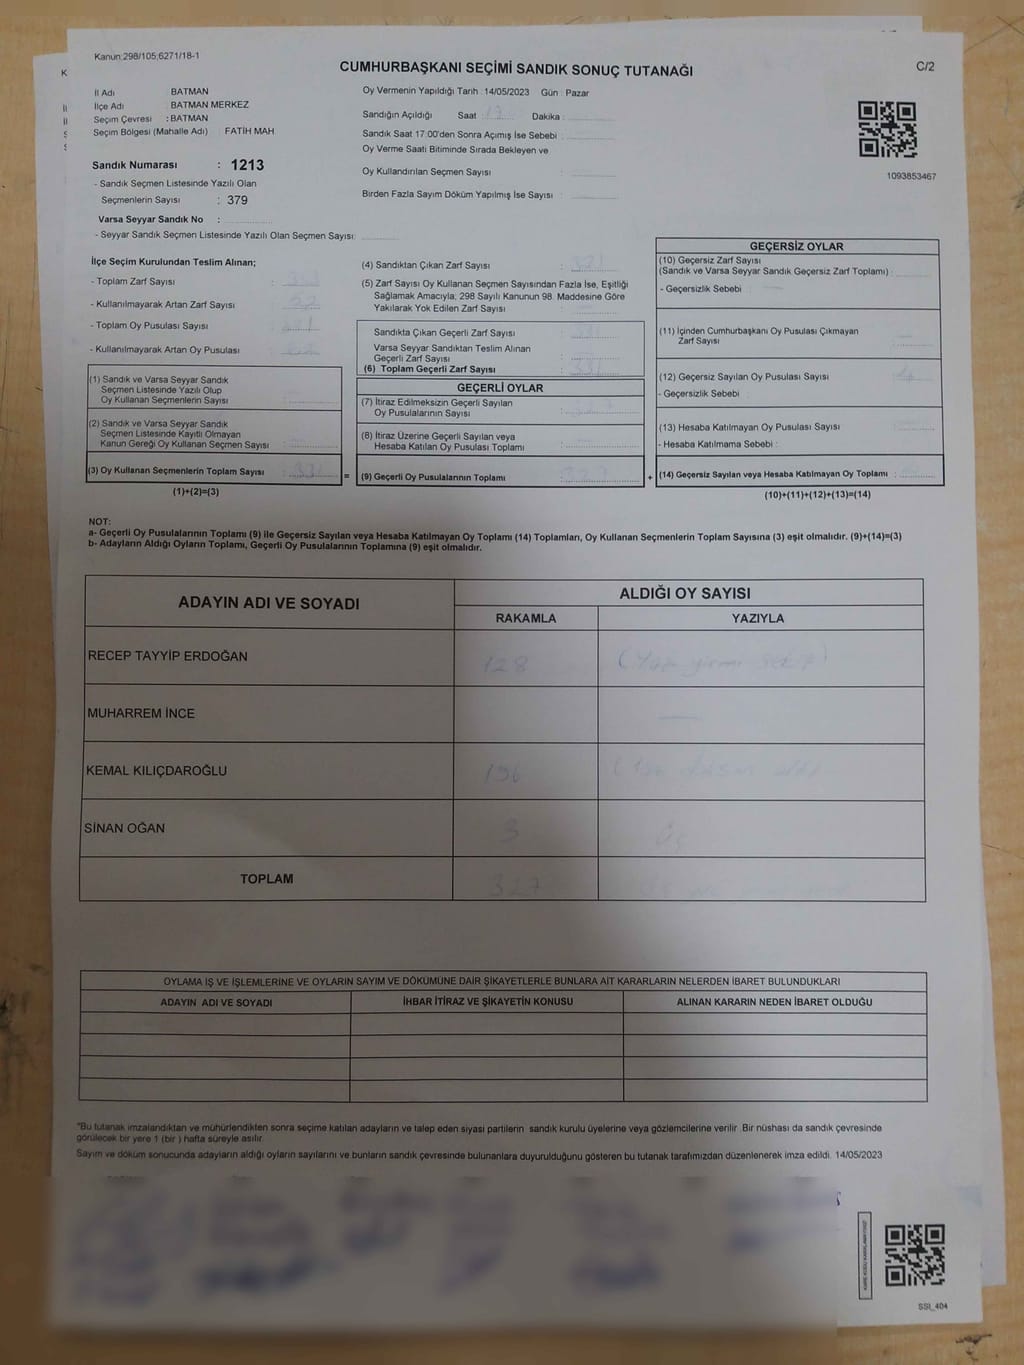 Kanun:298/105;6271/18-1
CUMHURBAŞKANI SEÇİMİ SANDIK SONUÇ TUTANAĞI
C/2
İl Adı BATMAN
İlçe Adı : BATMAN MERKEZ
Seçim Çevresi : BATMAN
Seçim Bölgesi (Mahalle Adı) FATİH MAH
Sandık Numarası : 1213
- Sandık Seçmen Listesinde Yazılı Olan
Seçmenlerin Sayısı : 379
Varsa Seyyar Sandık No :
- Seyyar Sandık Seçmen Listesinde Yazılı Olan Seçmen Sayısı:
Oy Vermenin Yapıldığı Tarih : 14/05/2023 Gün : Pazar
Sandığın Açıldığı Saat : 17 Dakika :
Sandık Saat 17:00'den Sonra Açımış İse Sebebi :
Oy Verme Saati Bitiminde Sırada Bekleyen ve
Oy Kullandırılan Seçmen Sayısı :
Birden Fazla Sayım Döküm Yapılmış İse Sayısı :
1093853467
İlçe Seçim Kurulundan Teslim Alınan;
- Toplam Zarf Sayısı :
- Kullanılmayarak Artan Zarf Sayısı :
- Toplam Oy Pusulası Sayısı :
- Kullanılmayarak Artan Oy Pusulası :
(1) Sandık ve Varsa Seyyar Sandık
Seçmen Listesinde Yazılı Olup
Oy Kullanan Seçmenlerin Sayısı :
(2) Sandık ve Varsa Seyyar Sandık
Seçmen Listesinde Kayıtlı Olmayan
Kanun Gereği Oy Kullanan Seçmen Sayısı :
(3) Oy Kullanan Seçmenlerin Toplam Sayısı : 331 =
(1)+(2)=(3)
(4) Sandıktan Çıkan Zarf Sayısı : 331
(5) Zarf Sayısı Oy Kullanan Seçmen Sayısından Fazla İse, Eşitliği
Sağlamak Amacıyla; 298 Sayılı Kanunun 98. Maddesine Göre
Yakılarak Yok Edilen Zarf Sayısı :
Sandıkta Çıkan Geçerli Zarf Sayısı : 331
Varsa Seyyar Sandıktan Teslim Alınan
Geçerli Zarf Sayısı :
(6) Toplam Geçerli Zarf Sayısı : 331
GEÇERLİ OYLAR
(7) İtiraz Edilmeksizin Geçerli Sayılan
Oy Pusulalarının Sayısı : 327
(8) İtiraz Üzerine Geçerli Sayılan veya
Hesaba Katılan Oy Pusulası Toplamı :
(9) Geçerli Oy Pusulalarının Toplamı : 327 +
GEÇERSİZ OYLAR
(10) Geçersiz Zarf Sayısı
(Sandık ve Varsa Seyyar Sandık Geçersiz Zarf Toplamı) :
- Geçersizlik Sebebi :
(11) İçinden Cumhurbaşkanı Oy Pusulası Çıkmayan
Zarf Sayısı :
(12) Geçersiz Sayılan Oy Pusulası Sayısı : 4
- Geçersizlik Sebebi :
(13) Hesaba Katılmayan Oy Pusulası Sayısı :
- Hesaba Katılmama Sebebi :
(14) Geçersiz Sayılan veya Hesaba Katılmayan Oy Toplamı :
(10)+(11)+(12)+(13)=(14)
NOT:
a- Geçerli Oy Pusulalarının Toplamı (9) ile Geçersiz Sayılan veya Hesaba Katılmayan Oy Toplamı (14) Toplamları, Oy Kullanan Seçmenlerin Toplam Sayısına (3) eşit olmalıdır. (9)+(14)=(3)
b- Adayların Aldığı Oyların Toplamı, Geçerli Oy Pusulalarının Toplamına (9) eşit olmalıdır.
ADAYIN ADI VE SOYADI
ALDIĞI OY SAYISI
RAKAMLA YAZIYLA
RECEP TAYYİP ERDOĞAN 128 (Yüz yirmi sekiz)
MUHARREM İNCE —
KEMAL KILIÇDAROĞLU 196 (Yüz doksan altı)
SİNAN OĞAN 3 Üç
TOPLAM 327
OYLAMA İŞ VE İŞLEMLERİNE VE OYLARIN SAYIM VE DÖKÜMÜNE DAİR ŞİKAYETLERLE BUNLARA AİT KARARLARIN NELERDEN İBARET BULUNDUKLARI
ADAYIN ADI VE SOYADI İHBAR İTİRAZ VE ŞİKAYETİN KONUSU ALINAN KARARIN NEDEN İBARET OLDUĞU
"Bu tutanak imzalandıktan ve mühürlendikten sonra seçime katılan adayların ve talep eden siyasi partilerin sandık kurulu üyelerine veya gözlemcilerine verilir. Bir nüshası da sandık çevresinde
görülecek bir yere 1 (bir ) hafta süreyle asılır.
Sayım ve döküm sonucunda adayların aldığı oyların sayılarını ve bunların sandık çevresinde bulunanlara duyurulduğunu gösteren bu tutanak tarafımızdan düzenlenerek imza edildi. 14/05/2023
SSI_404